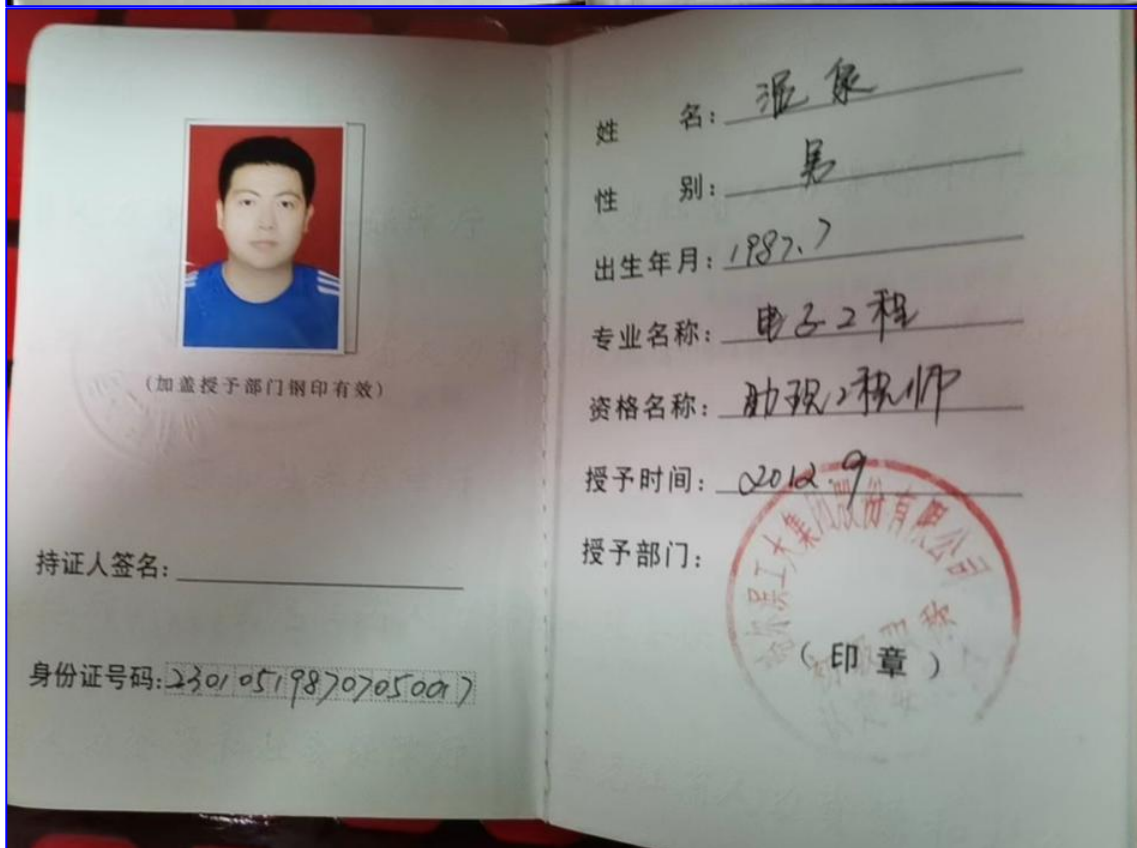 (加盖授予部门钢印有效)
持证人签名:
身份证号码:230105198707050017
姓 名:温泉
性 别:男
出生年月:1987.7
专业名称:电子工程
资格名称:助理工程师
授予时间:2012.9
授予部门:
哈尔滨工大集团股份有限公司
(印章)